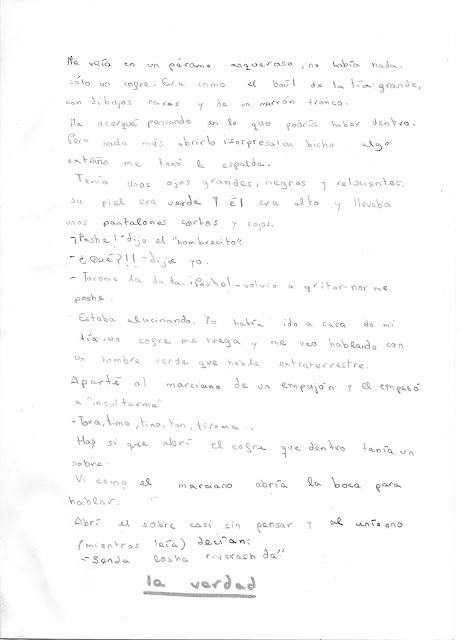 Me veía en un páramo asqueroso, no había nada.
sólo un cogre. Era como el baúl de la tía grande,
con dibujos raros y de un marrón tronco.
Me acerqué pensando en lo que podría haber dentro.
Pero nada más abrirlo ¡sorpresa! un bicho algo
extraño me tocó la espalda.
Tenía unos ojos grandes, negros y relucientes,
su piel era verde Y él era alto y llevaba
unos pantalones cortos y rojos.
-¡Pashe! - dijo el "hombrecito".
- ¿Qué?!! - dije yo.
- Tarome la dada. ¡Pashe! - volvio a gritar - nor me
poshe.
Estaba alucinando. Yo había ido a casa de mi
tía, un cogre me traga y me veo hablando con
un hombre verde que habla extraterrestre.
Aparté al marciano de un empujón y él empezó
a "insultarme"
- Tora, timo, tino, ton, tirema...
Hay si que abrí el cogre que dentro tenía un
sobre.
Vi como el marciano abría la boca para
hablar.
Abrí el sobre casi sin pensar y al unísono
(mientras leía) decían:
- Senda losha riverash da"
la verdad